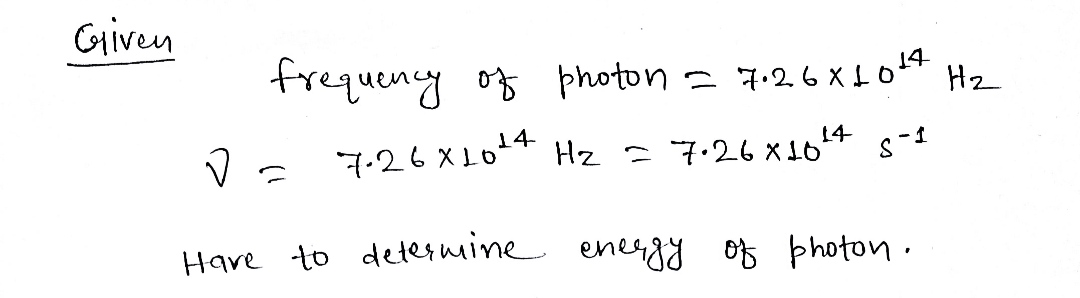 Given
frequency of photon = 7.26 × 10¹⁴ Hz
ν = 7.26 × 10¹⁴ Hz = 7.26 × 10¹⁴ s⁻¹
Have to determine energy of photon.